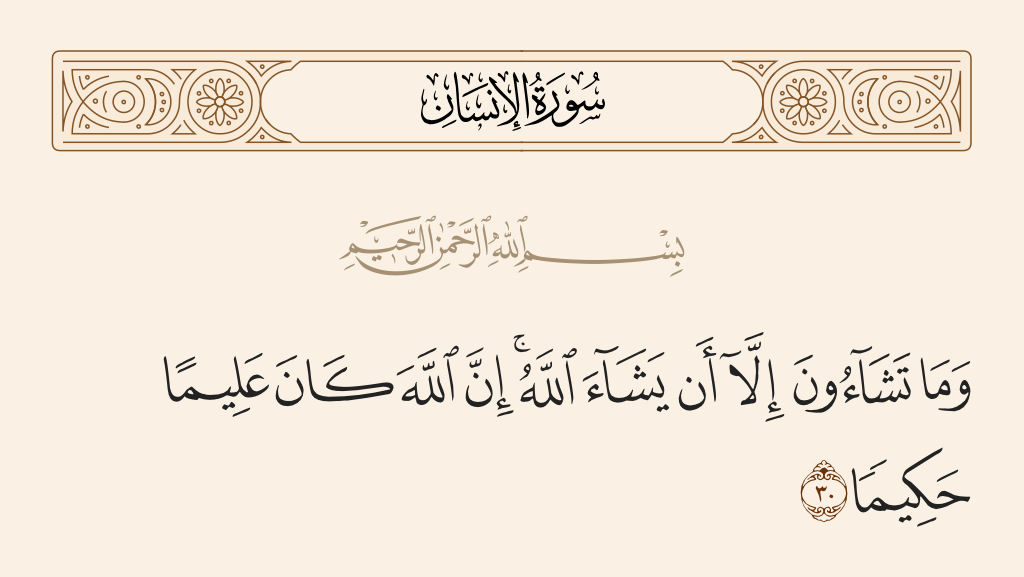 سُورَةُ الإِنسَانِ
بِسْمِ ٱللَّهِ ٱلرَّحْمَٰنِ ٱلرَّحِيمِ
وَمَا تَشَآءُونَ إِلَّآ أَن يَشَآءَ ٱللَّهُ ۚ إِنَّ ٱللَّهَ كَانَ عَلِيمًا
حَكِيمًا ٣٠